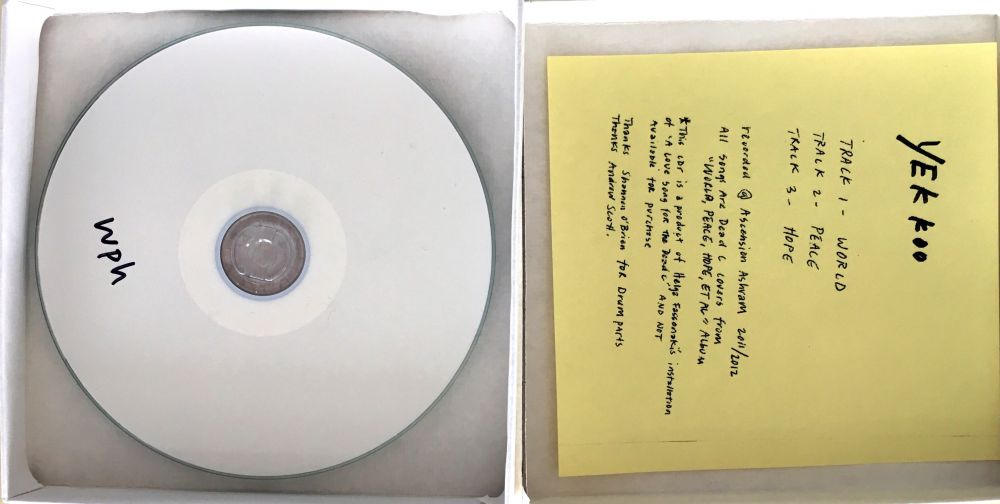 wph
YEKKOO
TRACK 1 - WORLD
TRACK 2 - PEACE
TRACK 3 - HOPE
recorded @ Ascension Ashram 2011/2012
All songs Are Dead C covers from
"WORLD, PEACE, HOPE, ET AL" Album
*This cdr is a product of Helga Fassonaki's installation
of "A Love song for the Dead C" AND NOT
Available for purchase
Thanks Shannon O'Brien for Drum parts
Thanks Andrew Scott.